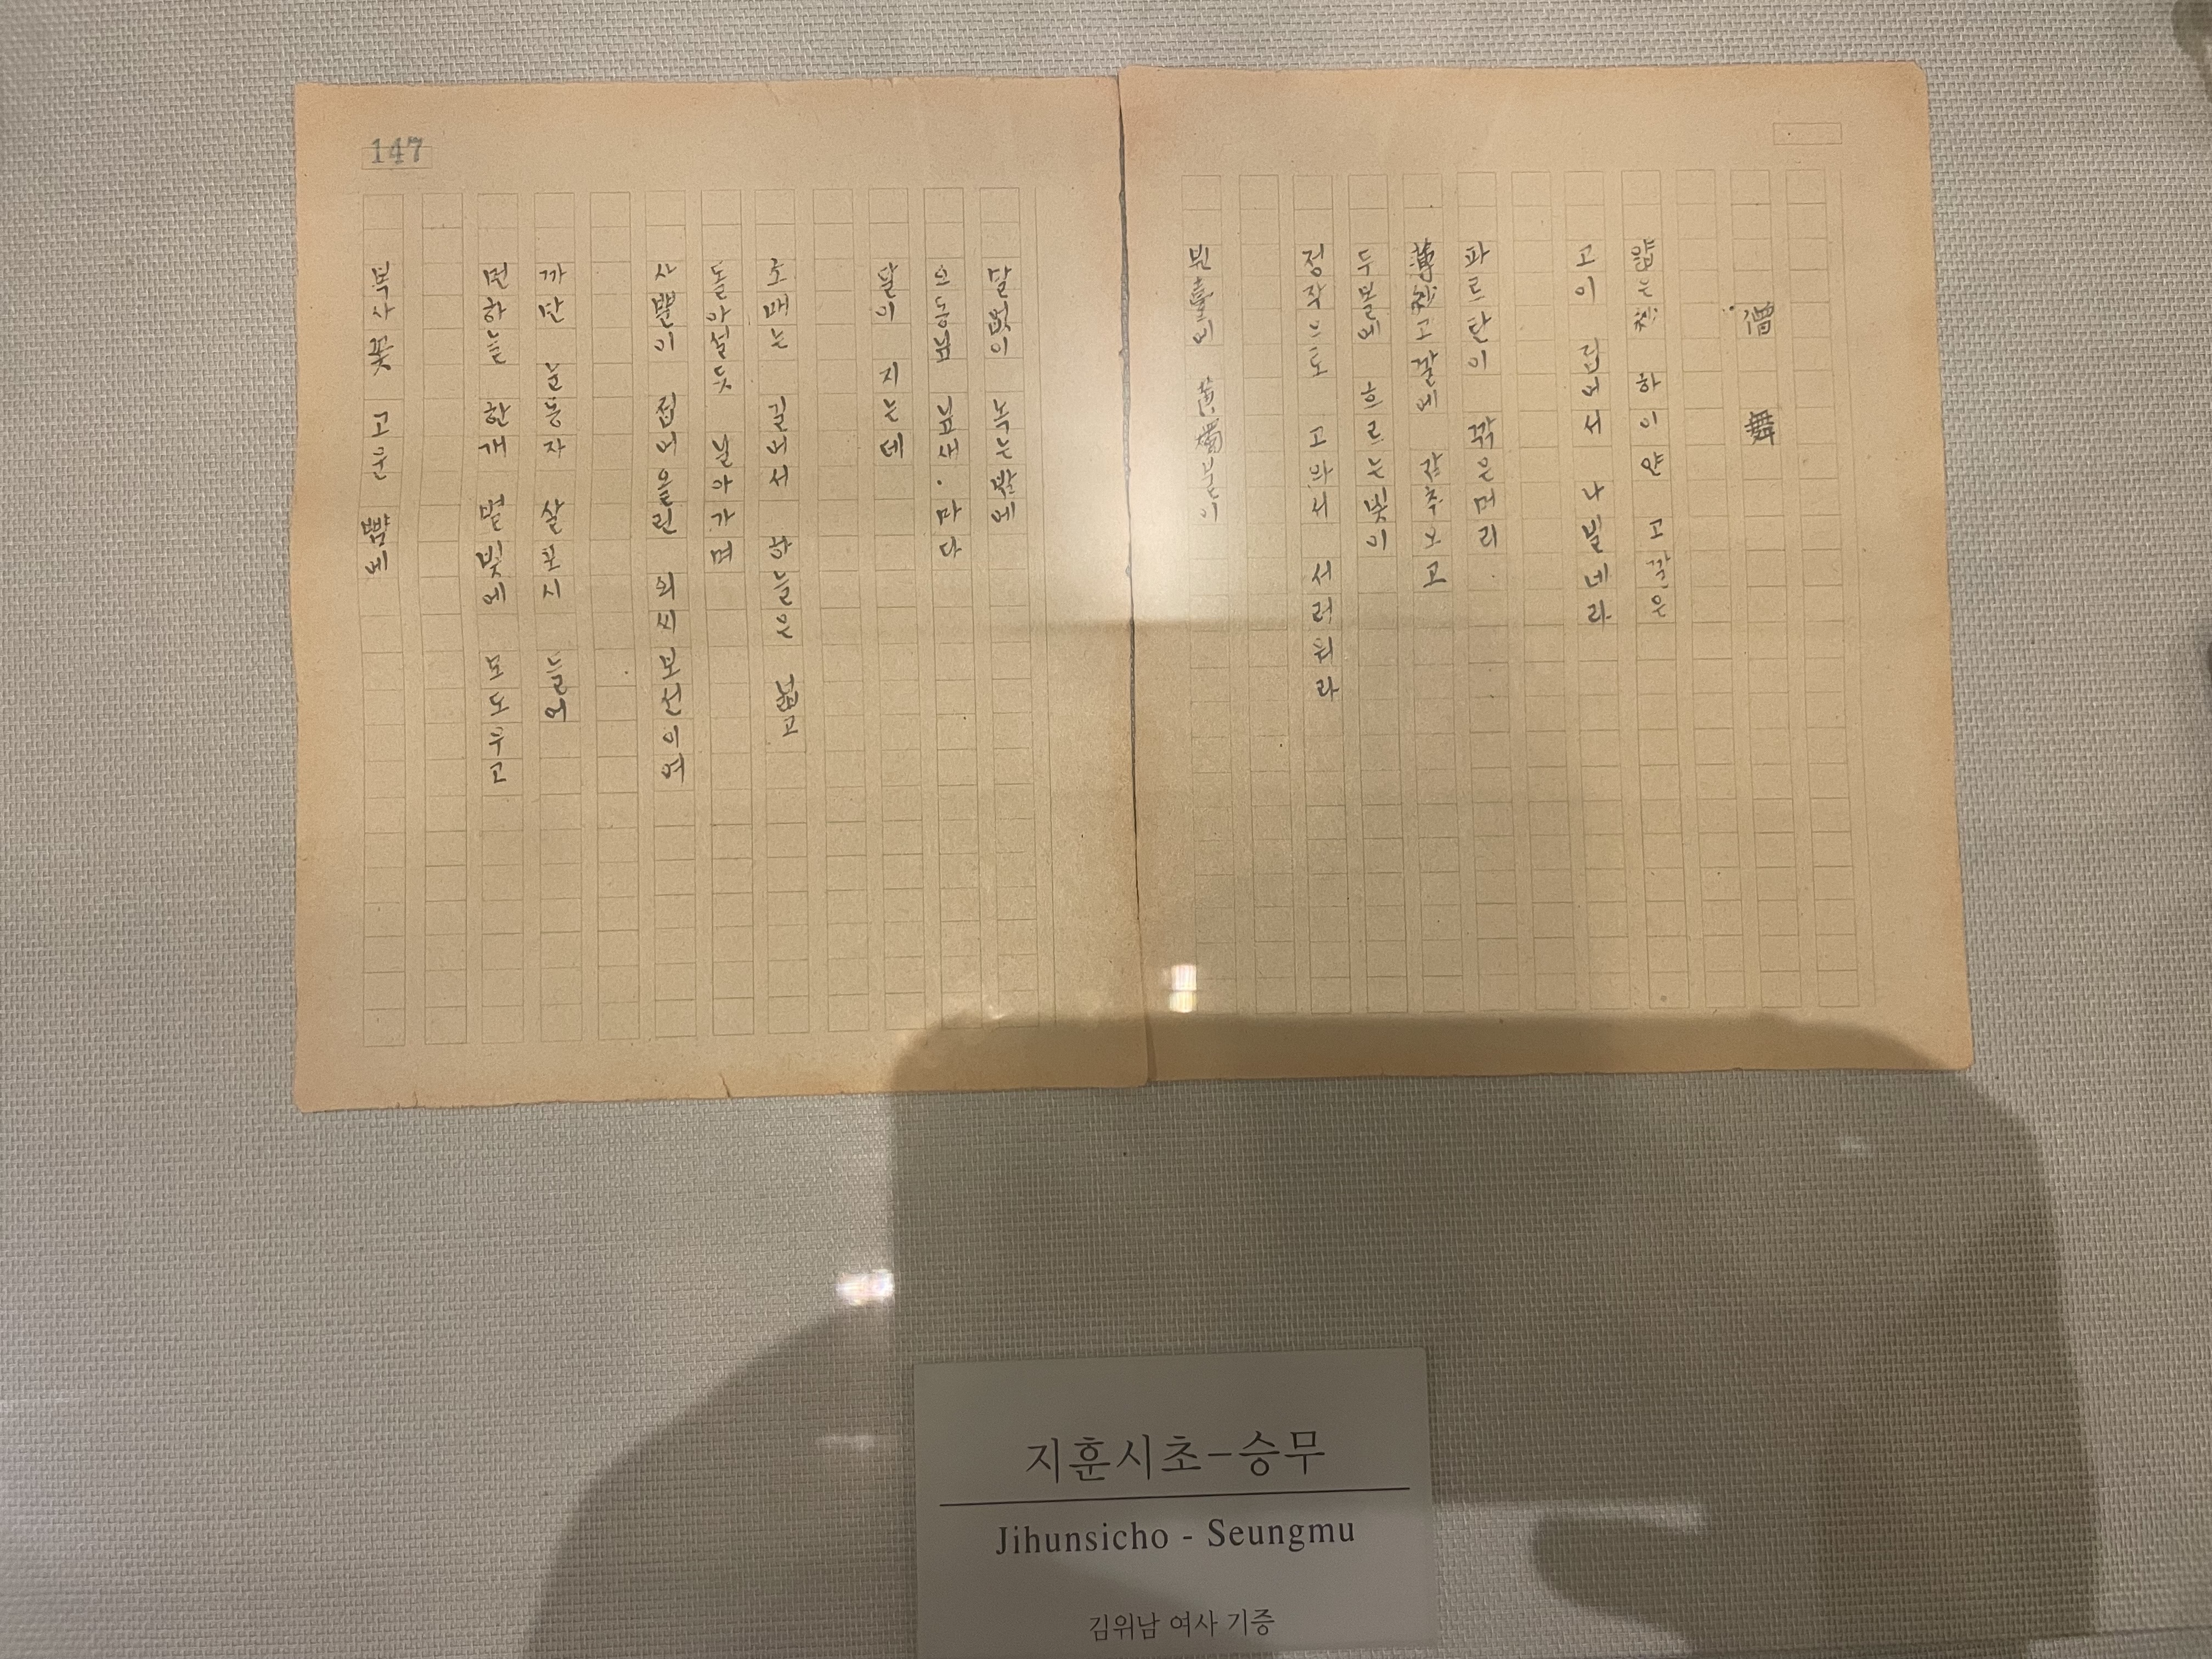 僧舞
얇은紗 하이얀 고깔은
고이 접어서 나빌네라
파르란이 깎은머리
薄紗고깔에 감추오고
두볼에 흐르는빛이
정작으로 고와서 서러워라
빈臺에 黃燭불이
말없이 녹는밤에
오동닢 닢새·마다
달이 지는데
소매는 길어서 하늘은 넓고
돌아설듯 날아가며
사뿐이 접어올린 외씨보선이여
까만 눈동자 살포시 들어
먼하늘 한개 별빛에 모도우고
복사꽃 고운 뺨에
147
지훈시초-승무
Jihunsicho - Seungmu
김위남 여사 기증